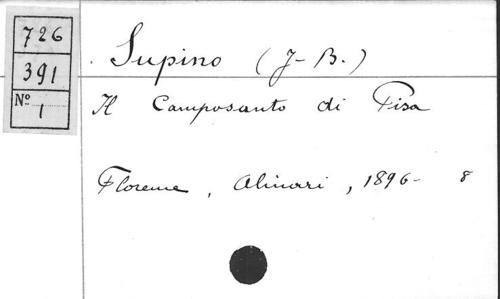 726
391
Nº 1
Supino (J-B.)
Il Camposanto di Pisa
Florence, Alinari, 1896- 8